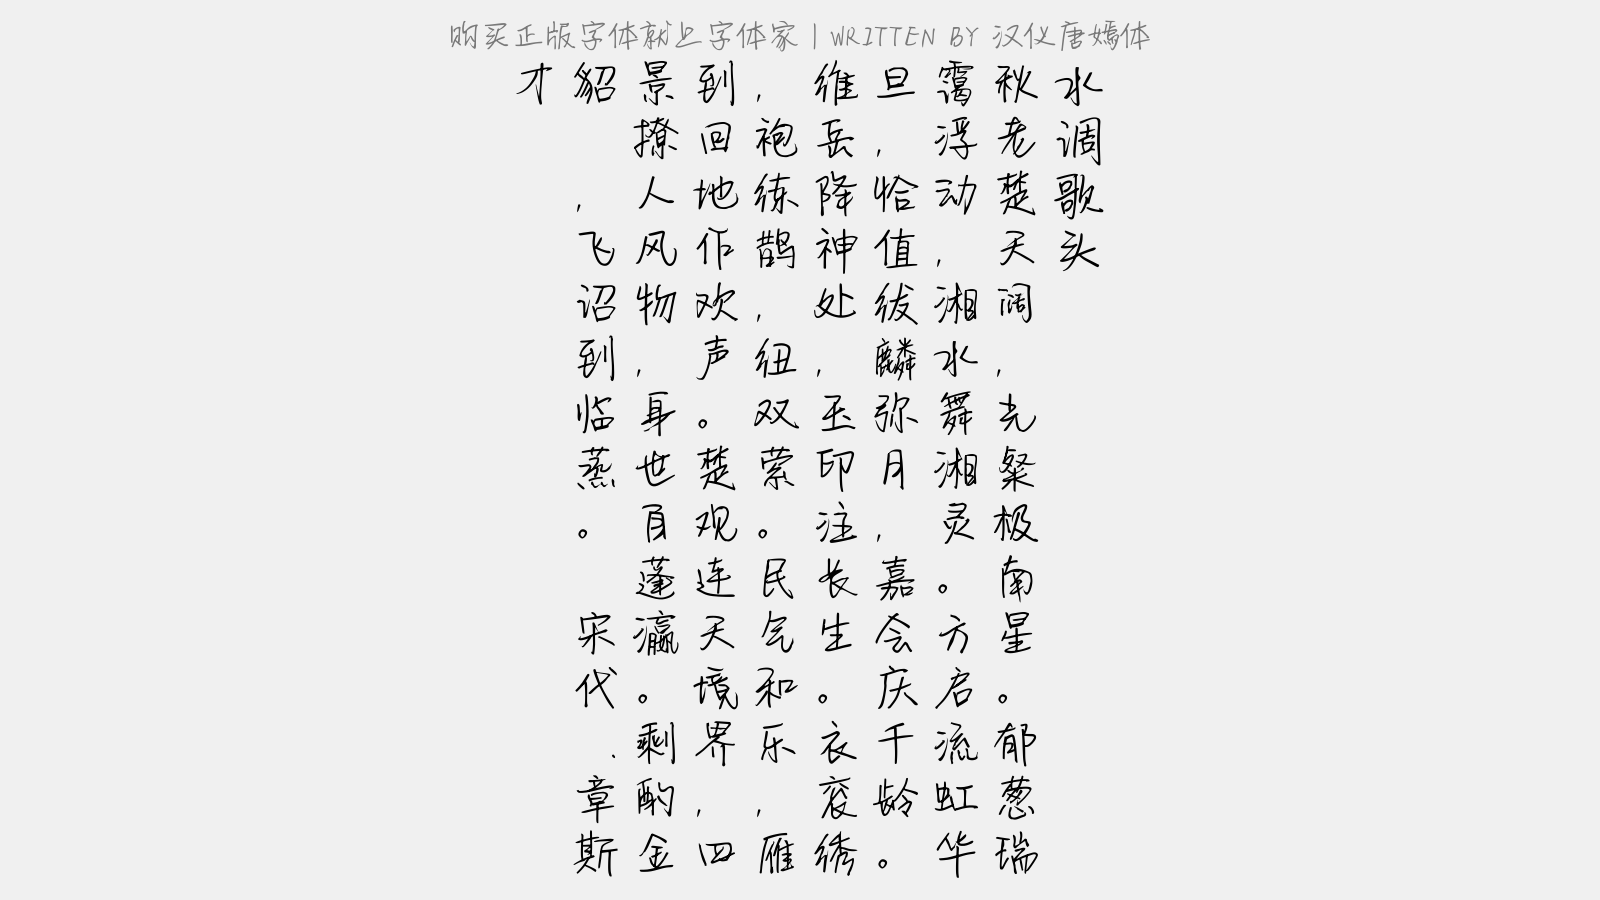 购买正版字体就上字体家 | WRITTEN BY 汉仪唐嫣体
水调歌头
秋老楚天阔，光粲极南星。郁葱瑞
霭浮动，湘水舞湘灵。方启流虹华
旦，恰值绂麟弥月，嘉会庆千龄。
维岳降神处，玉印注长生。衣衮绣
，袍练鹊，纽双萦。民气和乐，雁
到回地作欢声。楚观连天境界，四
景撩人风物，身世自蓬瀛。剩酌金
貂，飞诏到临蒸。 宋代·章斯
才